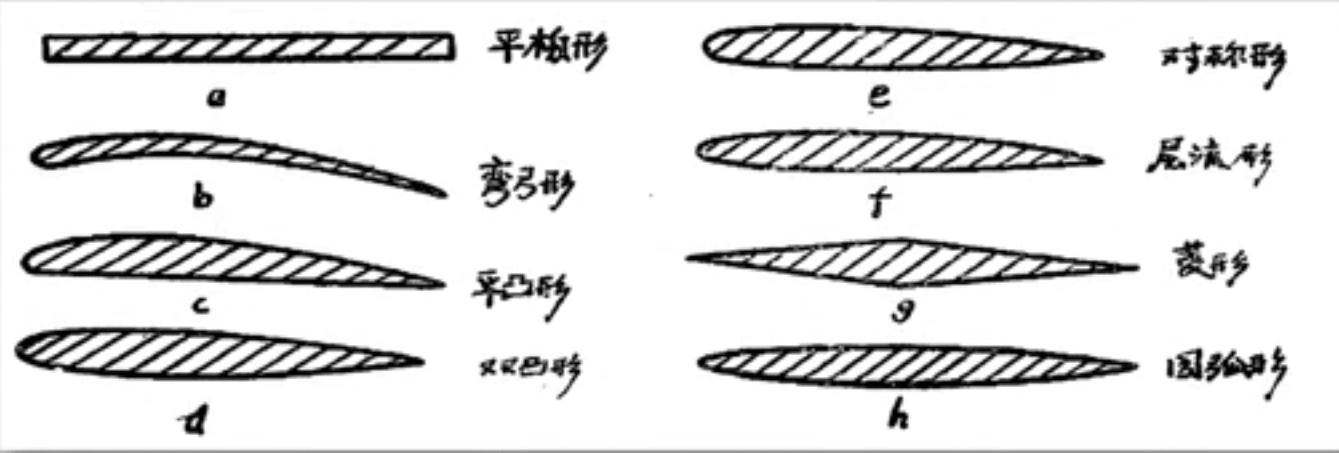 平板形
a
弯弓形
b
平凸形
c
双凸形
d
对称形
e
层流形
f
菱形
g
圆弧形
h